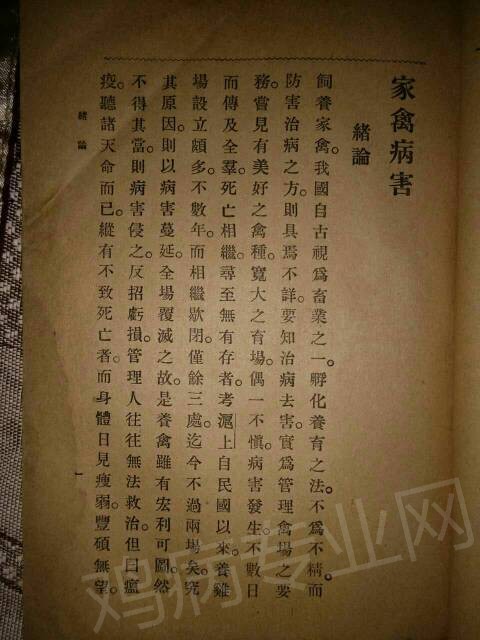 家禽病害
緒論
飼養家禽。我國自古視爲畜業之一。孵化養育之法。不爲不精。而
防害治病之方。則具焉不詳。要知治病去害。實爲管理禽場之要
務。嘗見有美好之禽種。寬大之育場。偶一不愼。病害發生。不數日
而傳及全羣。死亡相繼。尋至無有存者。考滬上自民國以來。養雞
場設立頗多。不數年。而相繼歇閉。僅餘三處。迄今不過兩場矣。究
其原因。則以病害蔓延。全場覆滅之故。是養禽雖有宏利可圖。然
不得其當。則病害侵之。反招虧損。管理人往往無法救治。但曰瘟
疫。聽諸天命而已。縱有不致死亡者。而身體日見瘦弱。豐碩無望。
緒論
一
鸡病专业网